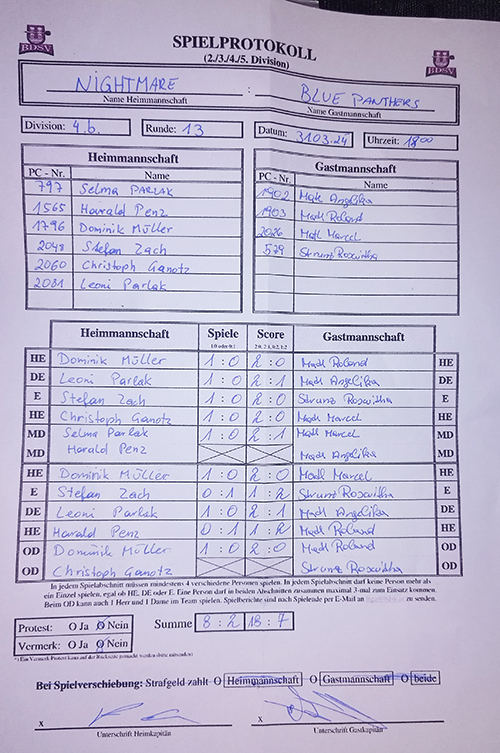 BDSV
SPIELPROTOKOLL
(2./3./4./5. Division)
BDSV
NIGHTMARE : BLUE PANTHERS
Name Heimmannschaft Name Gastmannschaft
Division: 4.b. Runde: 13 Datum: 31.03.24 Uhrzeit: 18⁰⁰
Heimmannschaft Gastmannschaft
PC - Nr. Name PC - Nr. Name
797 Selma PARLAK 1902 Madl Angelika
1565 Harald Penz 1903 Madl Roland
1796 Dominik Müller 2026 Madl Marcel
2048 Stefan Zach 579 Strunz Roswitha
2060 Christoph Ganotz
2081 Leoni Parlak
Heimmannschaft Spiele Score Gastmannschaft
1:0 oder 0:1 2:0, 2:1, 0:2, 1:2
HE Dominik Müller 1 : 0 2 : 0 Madl Roland HE
DE Leoni Parlak 1 : 0 2 : 1 Madl Angelika DE
E Stefan Zach 1 : 0 2 : 0 Strunz Roswitha E
HE Christoph Ganotz 1 : 0 2 : 0 Madl Marcel HE
MD Selma Parlak 1 : 0 2 : 1 Madl Marcel MD
MD Harald Penz Madl Angelika MD
HE Dominik Müller 1 : 0 2 : 0 Madl Marcel HE
E Stefan Zach 0 : 1 1 : 2 Strunz Roswitha E
DE Leoni Parlak 1 : 0 2 : 1 Madl Angelika DE
HE Harald Penz 0 : 1 1 : 2 Madl Roland HE
OD Dominik Müller 1 : 0 2 : 0 Madl Roland OD
OD Christoph Ganotz Strunz Roswitha OD
In jedem Spielabschnitt müssen mindestens 4 verschiedene Personen spielen. In jedem Spielabschnitt darf keine Person mehr als
ein Einzel spielen, egal ob HE, DE oder E. Eine Person darf in beiden Abschnitten zusammen maximal 3-mal zum Einsatz kommen.
Beim OD kann auch 1 Herr und 1 Dame im Team spielen. Spielberichte sind nach Spielende per E-Mail an zu senden.
Protest: O Ja O Nein Summe 8 : 2 18 : 7
Vermerk: O Ja O Nein
Bei Spielverschiebung: Strafgeld zahlt O Heimmannschaft O Gastmannschaft O beide
x x
Unterschrift Heimkapitän Unterschrift Gastkapitän